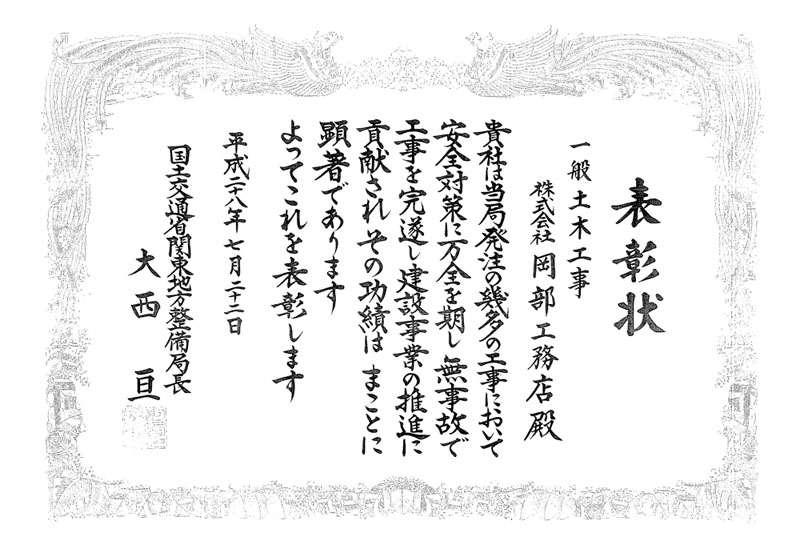 表彰状
一般土木工事
株式会社 岡部工務店殿
貴社は当局発注の幾多の工事において
安全対策に万全を期し 無事故で
工事を完遂し建設事業の推進に
貢献されその功績は まことに
顕著であります
よってこれを表彰します
平成二十八年七月二十二日
国土交通省関東地方整備局長
大西 亘